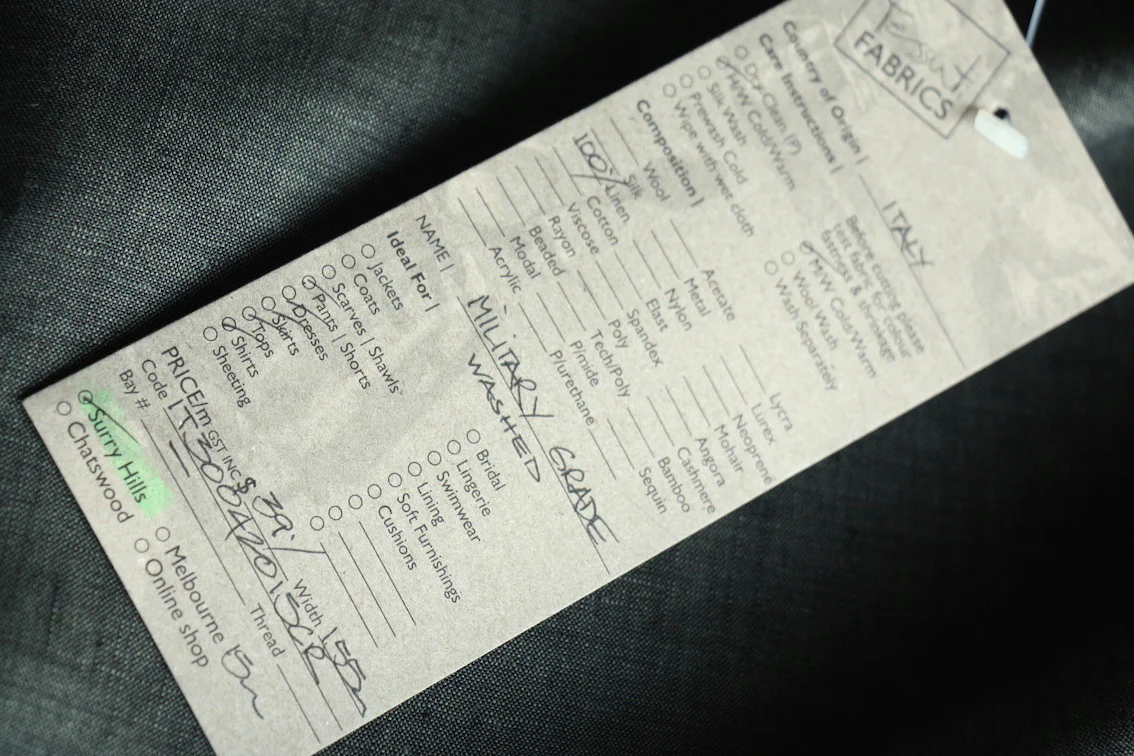 Tessuti
FABRICS
Country of Origin | ITALY
Care Instructions |
Before cutting please
test fabric for colour
fastness & shrinkage
Dry Clean (P)
H/W Cold/Warm
Silk Wash
Prewash Cold
Wipe with wet cloth
M/W Cold/Warm
Wool Wash
Wash Separately
Composition |
Wool
Silk
100% Linen
Cotton
Viscose
Rayon
Beaded
Modal
Acrylic
Acetate
Metal
Nylon
Elast
Spandex
Poly
Tech/Poly
P/mide
P/urethane
Lycra
Lurex
Neoprene
Mohair
Angora
Cashmere
Bamboo
Sequin
NAME | MILITARY GRADE
WASHED
Ideal For |
Jackets
Coats
Scarves | Shawls
Pants | Shorts
Dresses
Skirts
Tops
Shirts
Sheeting
Bridal
Lingerie
Swimwear
Lining
Soft Furnishings
Cushions
PRICE/m GST INC $ 39 Width 155
Code
Bay # Thread
Surry Hills
Chatswood
Melbourne 15m
Online shop